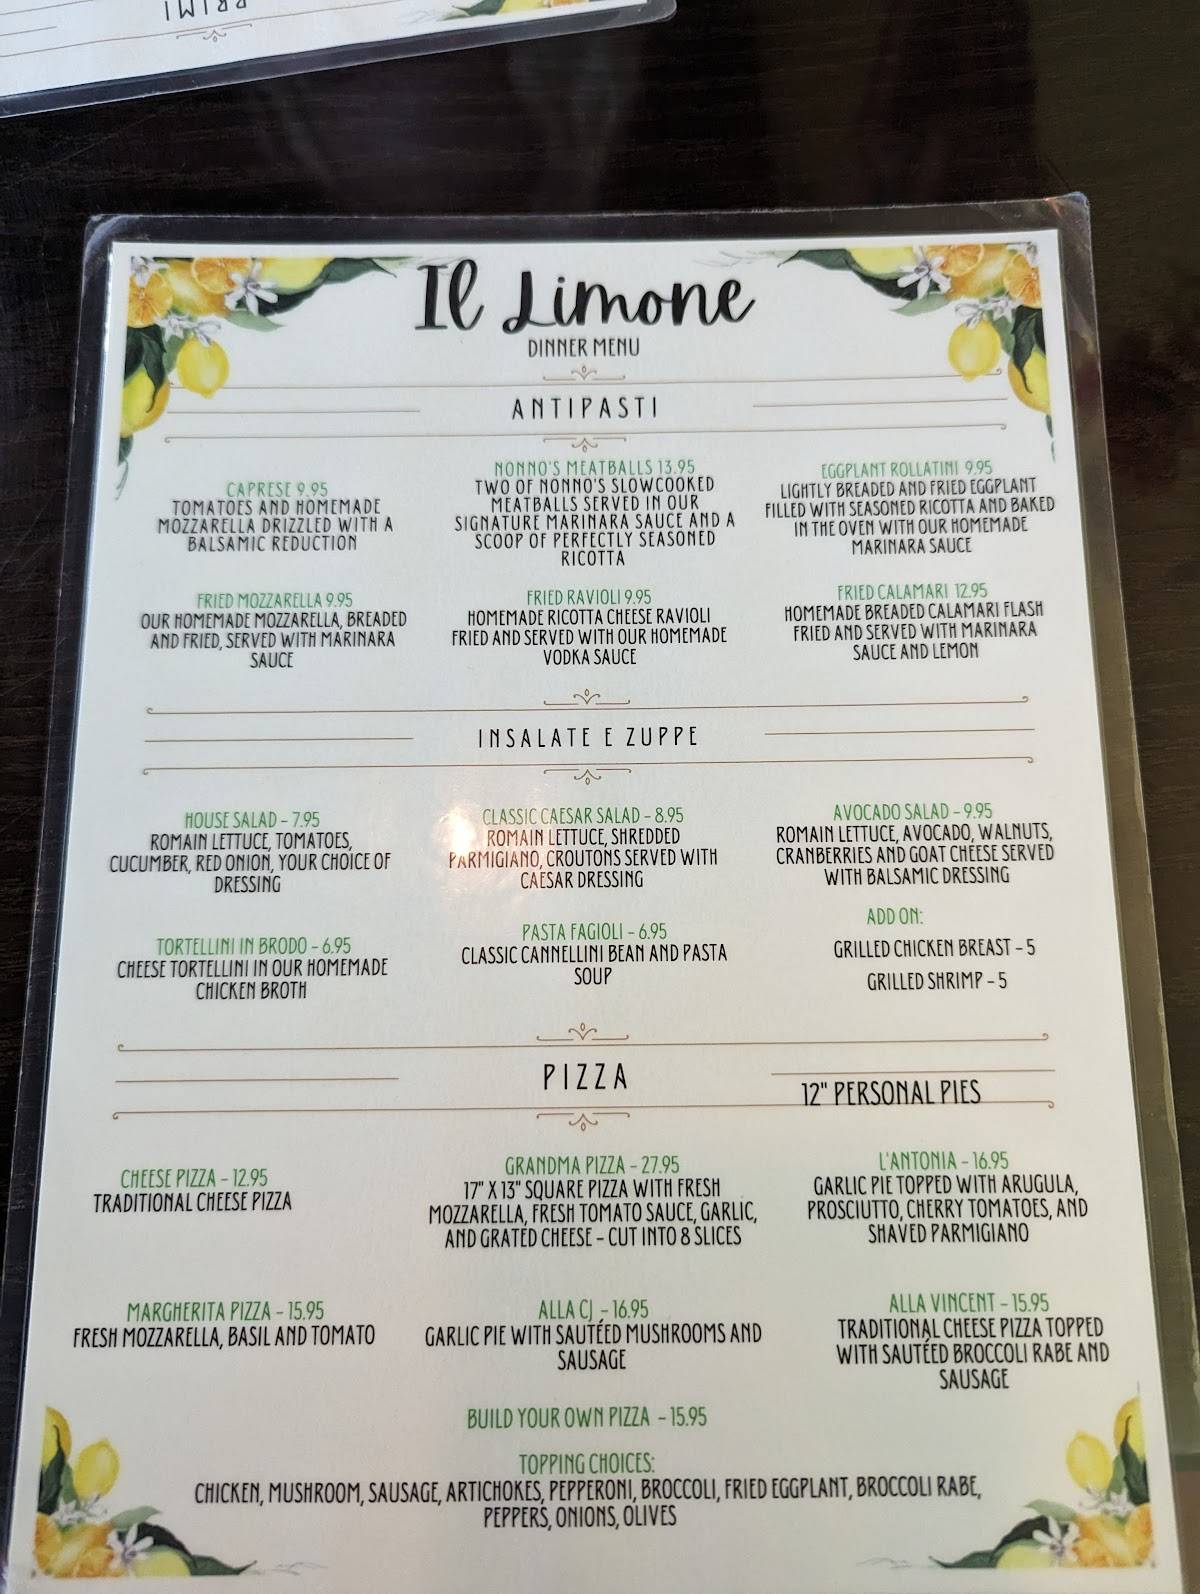 PRIMI
Il Limone
DINNER MENU
ANTIPASTI
CAPRESE 9.95
TOMATOES AND HOMEMADE
MOZZARELLA DRIZZLED WITH A
BALSAMIC REDUCTION
NONNO'S MEATBALLS 13.95
TWO OF NONNO'S SLOWCOOKED
MEATBALLS SERVED IN OUR
SIGNATURE MARINARA SAUCE AND A
SCOOP OF PERFECTLY SEASONED
RICOTTA
EGGPLANT ROLLATINI 9.95
LIGHTLY BREADED AND FRIED EGGPLANT
FILLED WITH SEASONED RICOTTA AND BAKED
IN THE OVEN WITH OUR HOMEMADE
MARINARA SAUCE
FRIED MOZZARELLA 9.95
OUR HOMEMADE MOZZARELLA, BREADED
AND FRIED, SERVED WITH MARINARA
SAUCE
FRIED RAVIOLI 9.95
HOMEMADE RICOTTA CHEESE RAVIOLI
FRIED AND SERVED WITH OUR HOMEMADE
VODKA SAUCE
FRIED CALAMARI 12.95
HOMEMADE BREADED CALAMARI FLASH
FRIED AND SERVED WITH MARINARA
SAUCE AND LEMON
INSALATE E ZUPPE
HOUSE SALAD - 7.95
ROMAIN LETTUCE, TOMATOES,
CUCUMBER, RED ONION, YOUR CHOICE OF
DRESSING
CLASSIC CAESAR SALAD - 8.95
ROMAIN LETTUCE, SHREDDED
PARMIGIANO, CROUTONS SERVED WITH
CAESAR DRESSING
AVOCADO SALAD - 9.95
ROMAIN LETTUCE, AVOCADO, WALNUTS,
CRANBERRIES AND GOAT CHEESE SERVED
WITH BALSAMIC DRESSING
TORTELLINI IN BRODO - 6.95
CHEESE TORTELLINI IN OUR HOMEMADE
CHICKEN BROTH
PASTA FAGIOLI - 6.95
CLASSIC CANNELLINI BEAN AND PASTA
SOUP
ADD ON:
GRILLED CHICKEN BREAST - 5
GRILLED SHRIMP - 5
PIZZA
12" PERSONAL PIES
CHEESE PIZZA - 12.95
TRADITIONAL CHEESE PIZZA
GRANDMA PIZZA - 27.95
17" X 13" SQUARE PIZZA WITH FRESH
MOZZARELLA, FRESH TOMATO SAUCE, GARLIC,
AND GRATED CHEESE - CUT INTO 8 SLICES
L'ANTONIA - 16.95
GARLIC PIE TOPPED WITH ARUGULA,
PROSCIUTTO, CHERRY TOMATOES, AND
SHAVED PARMIGIANO
MARGHERITA PIZZA - 15.95
FRESH MOZZARELLA, BASIL AND TOMATO
ALLA CJ - 16.95
GARLIC PIE WITH SAUTÉED MUSHROOMS AND
SAUSAGE
ALLA VINCENT - 15.95
TRADITIONAL CHEESE PIZZA TOPPED
WITH SAUTÉED BROCCOLI RABE AND
SAUSAGE
BUILD YOUR OWN PIZZA - 15.95
TOPPING CHOICES:
CHICKEN, MUSHROOM, SAUSAGE, ARTICHOKES, PEPPERONI, BROCCOLI, FRIED EGGPLANT, BROCCOLI RABE,
PEPPERS, ONIONS, OLIVES